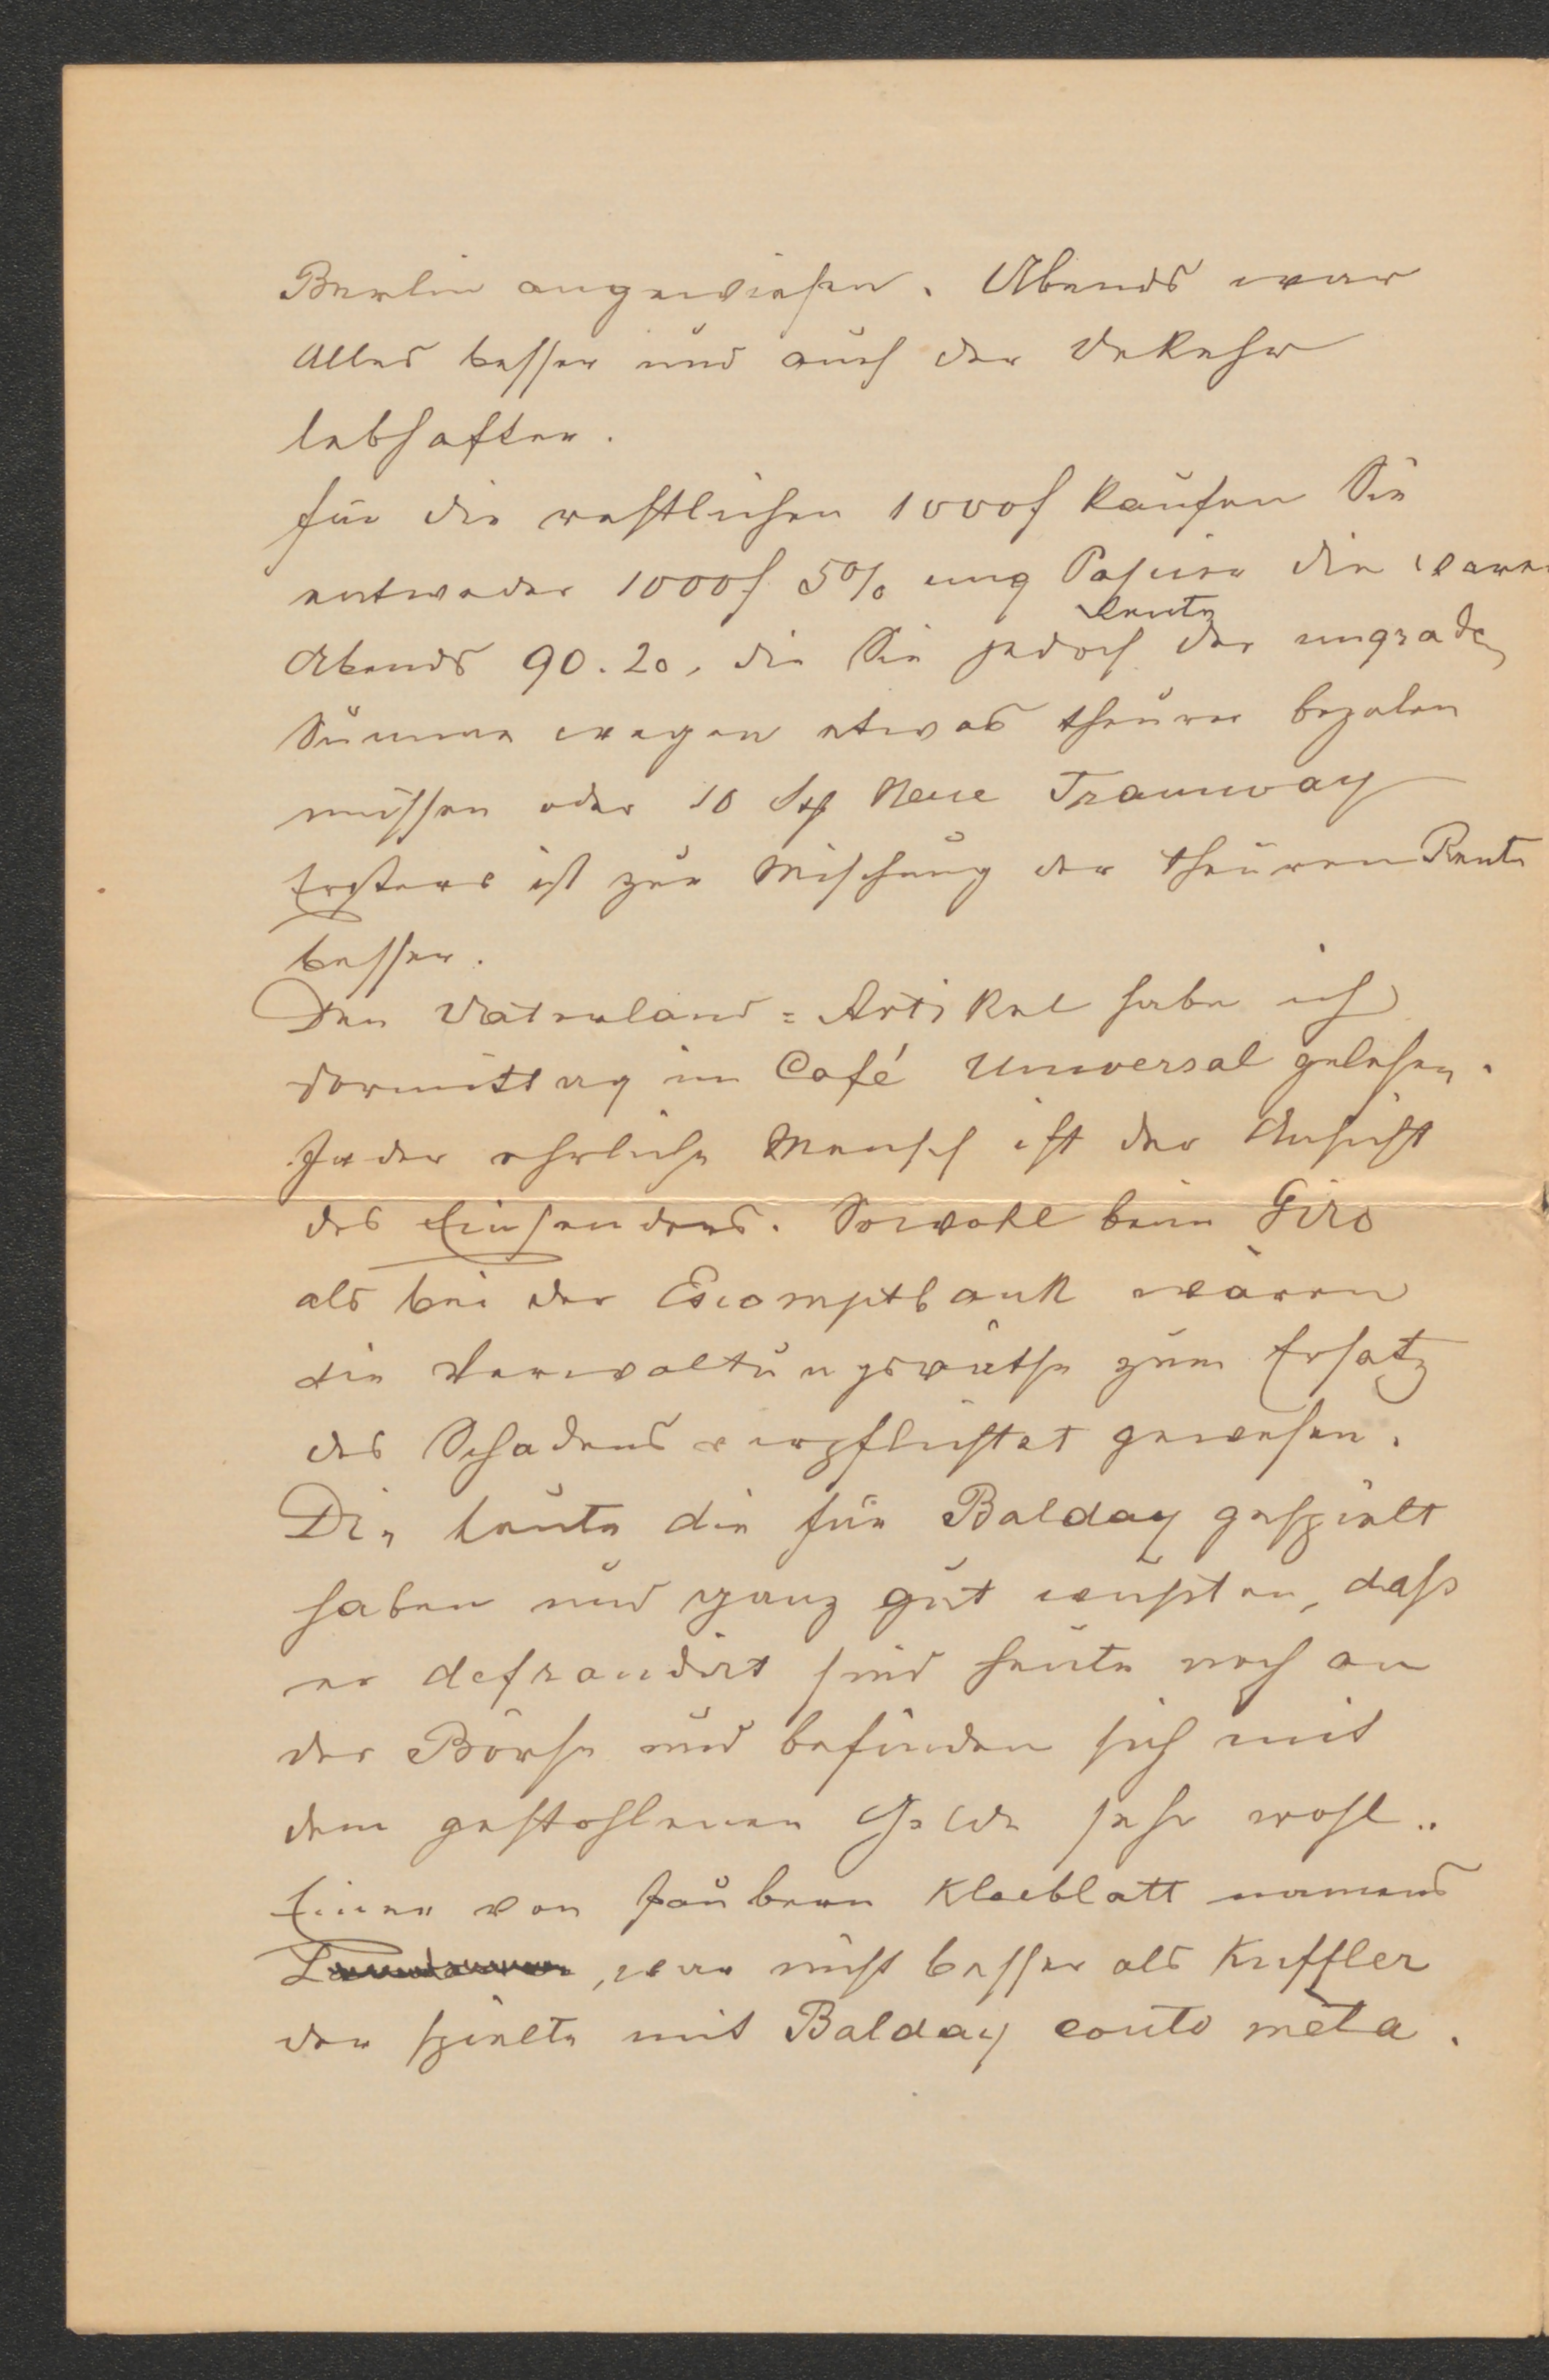 Berlin angewiesen. Abends war
Alles besser und auch der Vekehr
lebhafter.
für die restlichen 1000f kaufen Sie
entweder 1000f 5% ung Papier die waren
Rente
Abends 90.20, die Sie jedoch der ungrade
Summe wegen etwas theurer bezalen
müssen oder 10 Neue Tramway
Ersteres ist zur Mischung der theuren Rente
besser.
Den Vaterland=Artikel habe ich
Vormittag im Café Universal gelesen.
Jeder ehrliche Mensch ist der Ansicht
des Einsenders. Sowohl beim Giro
als bei der Escomptbank wären
die Verwaltungsräthe zum Ersatz
des Schadens verpflichtet gewesen.
Die Leute die für Balday gespielt
haben und ganz gut wußten, daß
er defraudirt sind heute noch an
der Börse und befinden sich mit
dem gestohlenen Gelde sehr wohl..
Einer von saubern Kleeblatt namens
, war nicht besser als Kuffler
der spielte mit Balday conto meta.